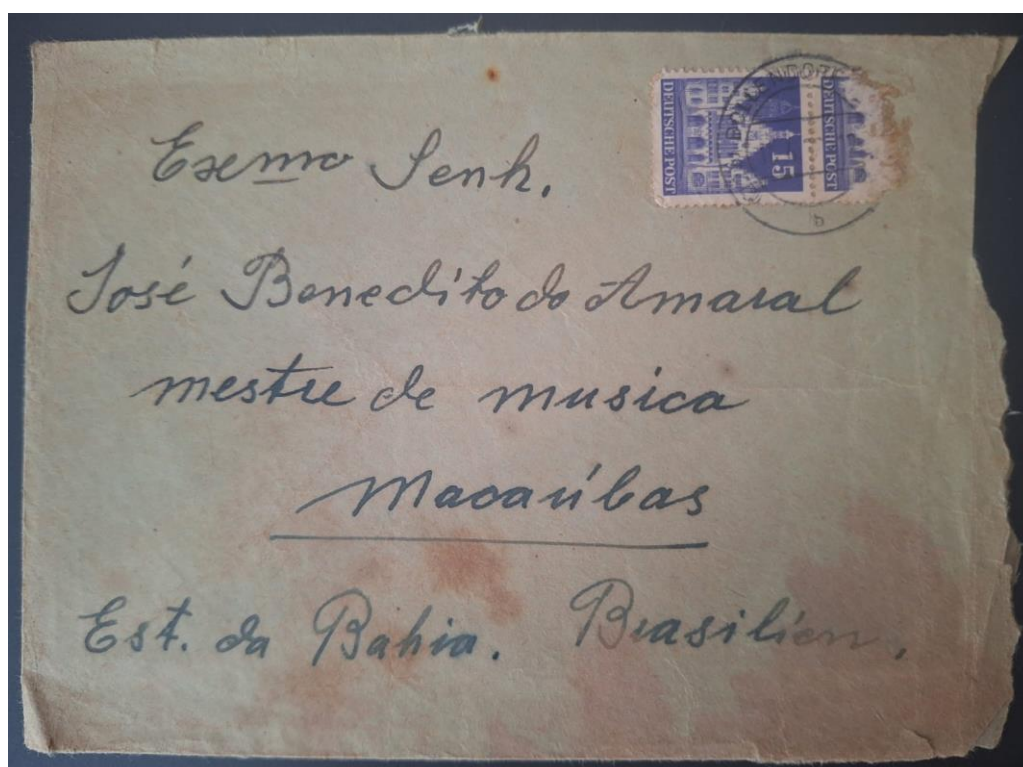 DEUTSCHE POST
15
DEUTSCHE POST
Exmo Senh.
José Benedito do Amaral
mestre de musica
Macaúbas
Est. da Bahia. Brasilien.